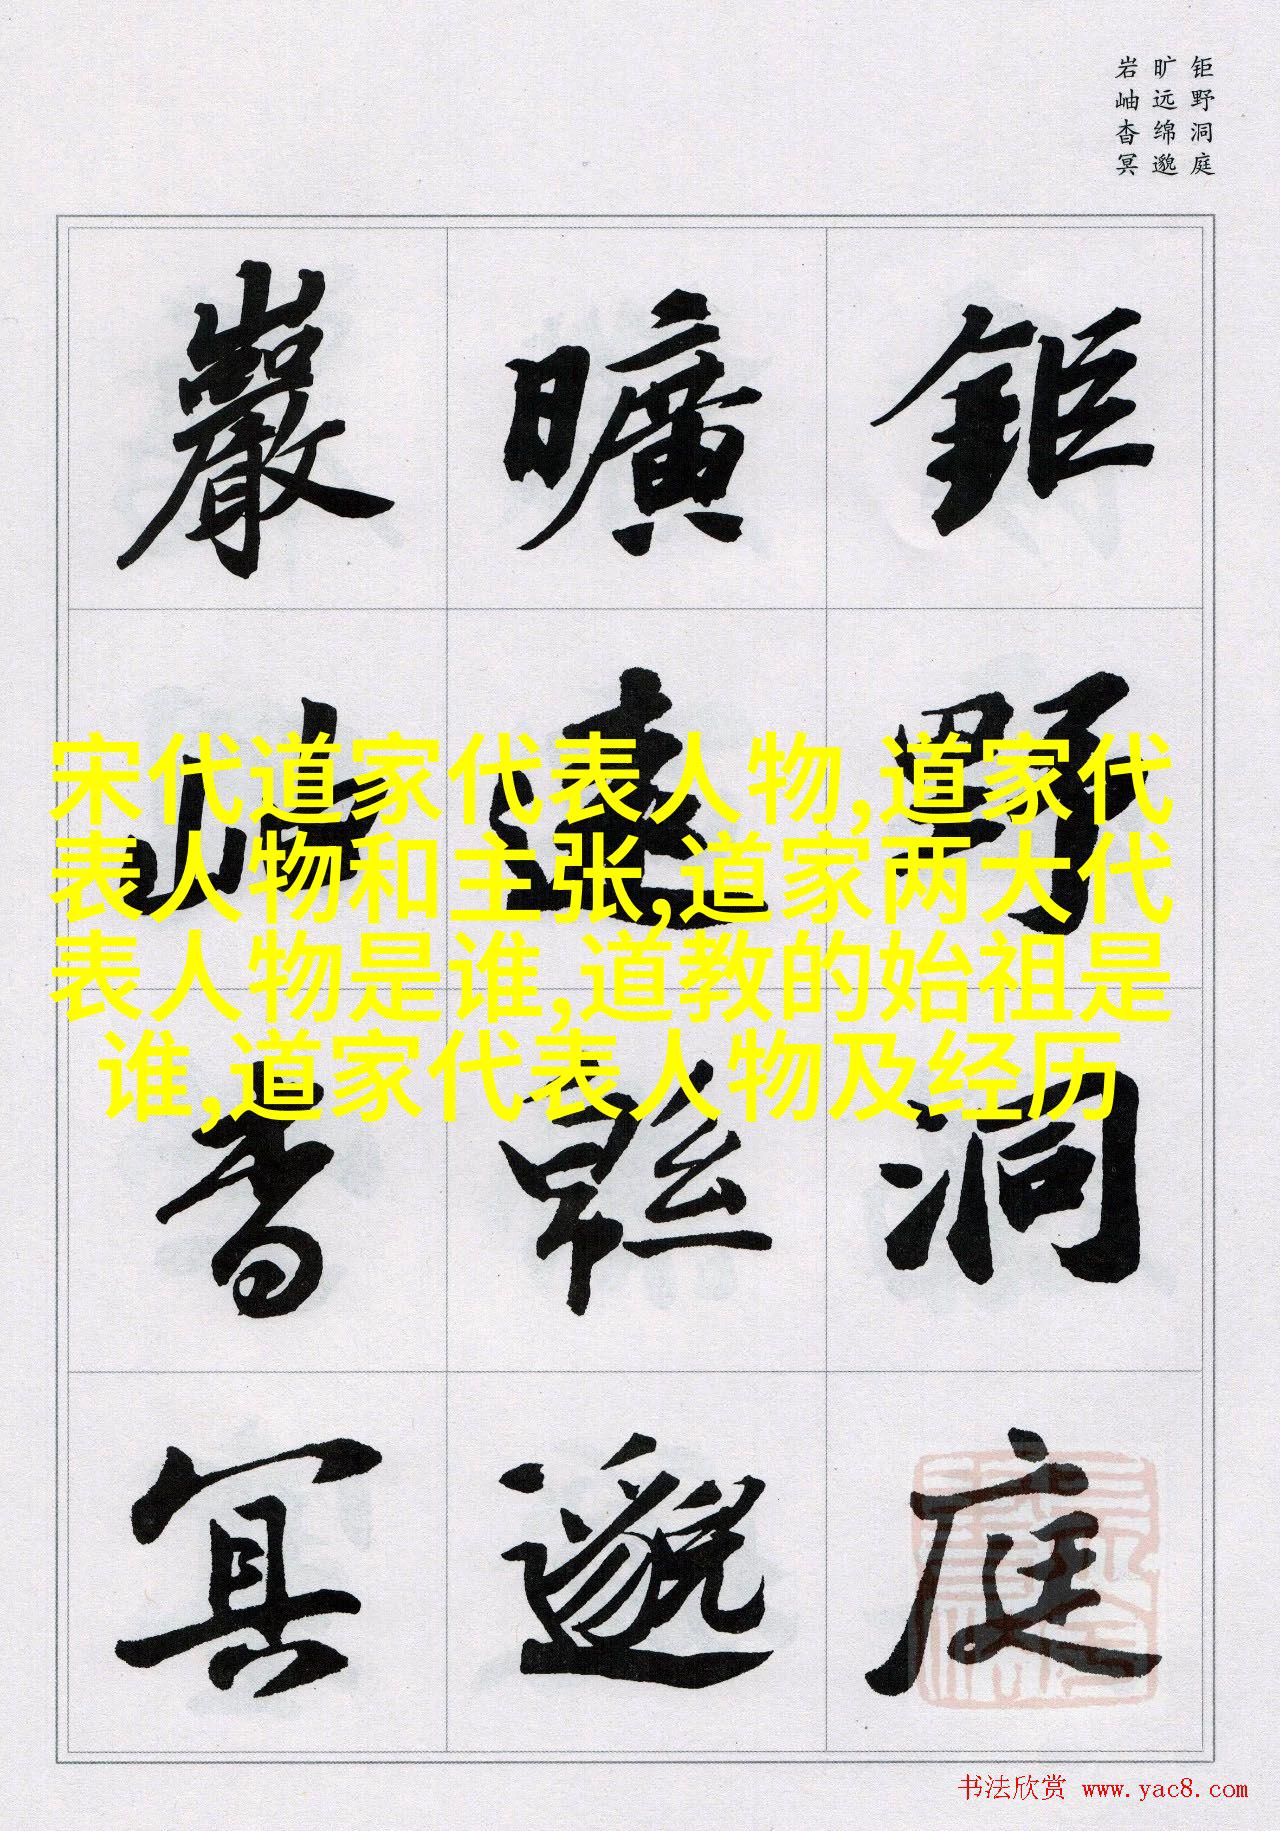 钜野洞庭
旷远绵邈
岩岫杳冥
鉅野洞庭
曠遠緜邈
巖岫杳冥
宋代道家代表人物,道家代
表人物和主张,道家两大代
表人物是谁,道教的始祖是
谁,道家代表人物及经历
书法欣赏 www.yac8.com